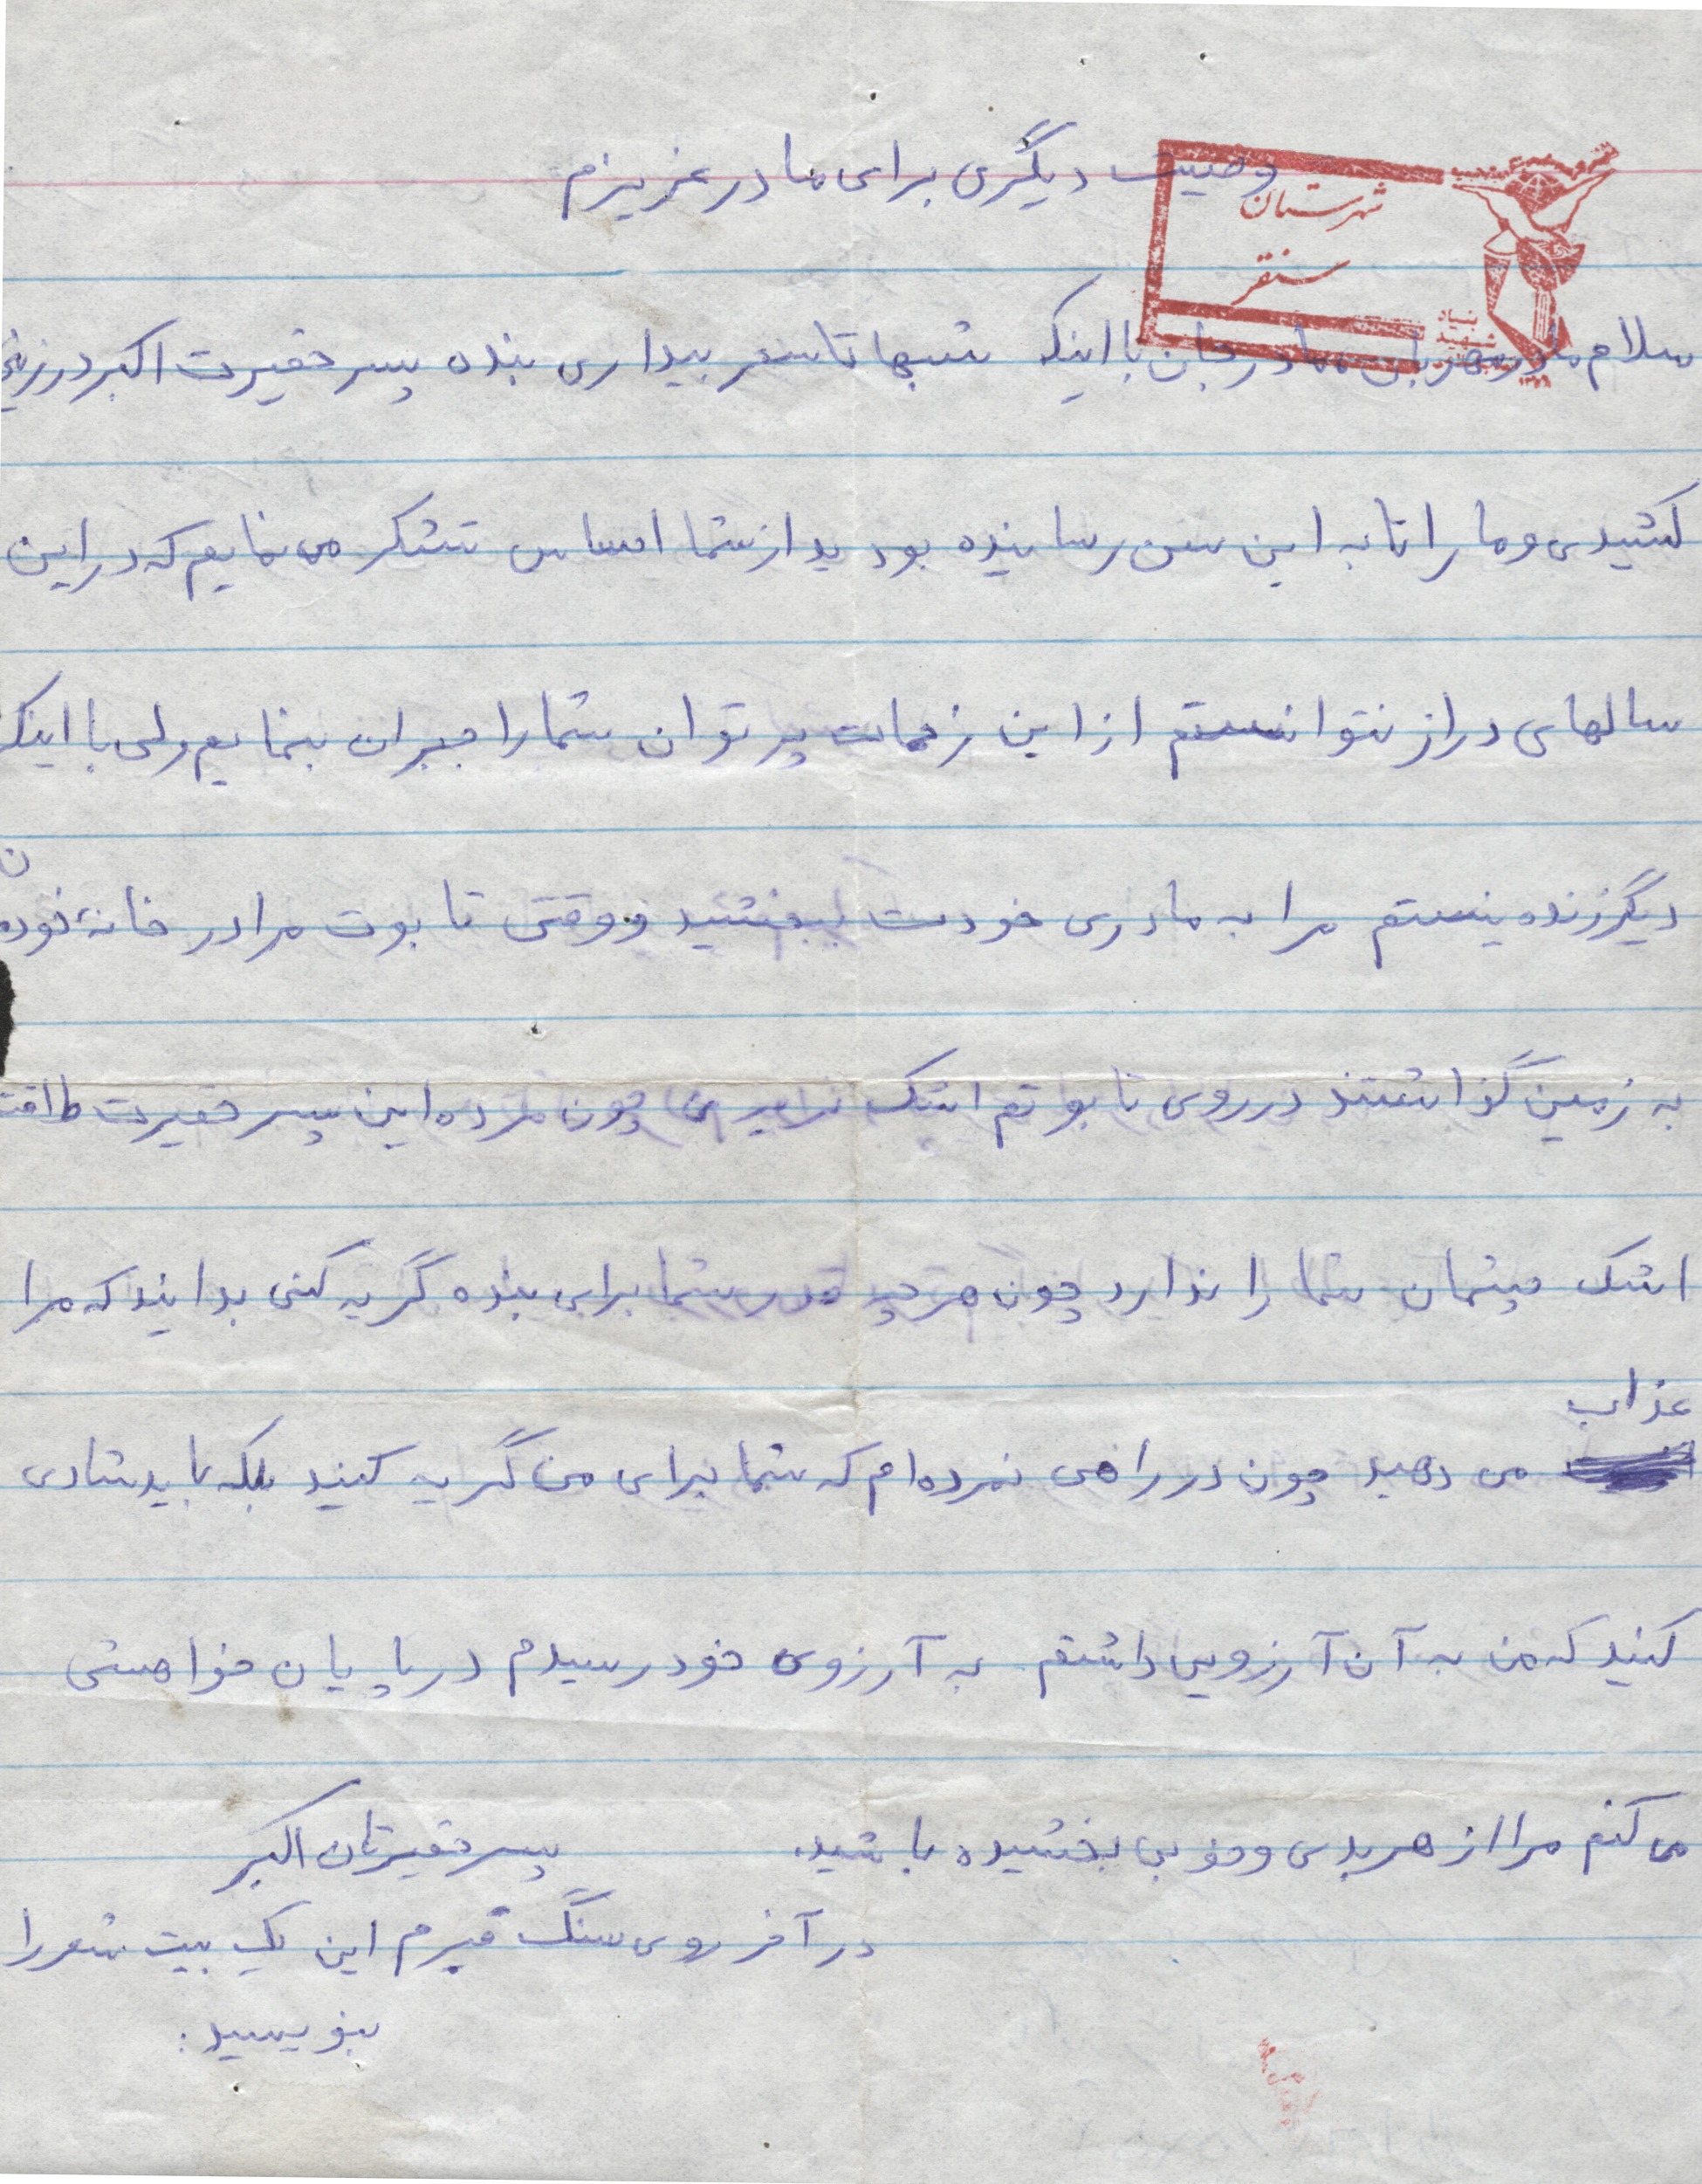 وصیت دیگری برای مادر عزیزم
شهرستان
سنقر
بنیاد
شهید
سلام مادر مهربان مادر جان با اینکه شبها تا سحر بیداری بنده پسر حقیرت اکبر در رنج
کشیدی و ما را تا به این سن رسانیده بودید از شما احساس تشکر می نمایم که در این
سالهای دراز نتوانستم از این زحمات پر توان شما را جبران بنمایم ولی با اینکه
دیگر زنده نیستم مرا به مادری خودت ببخشید و وقتی تابوت مرا در خانه خودمان
به زمین گذاشتند در روی تابوتم اشک نریزی چون مرده این پسر حقیرت طاقت
اشک چشمان شما را ندارد چون هر چه قدر شما برای بنده گریه کنی بدانید که مرا
عذاب
می دهید چون در راهی نمرده ام که شما برای من گریه کنید بلکه باید شادی
کنید که من به آن آرزویی داشتم به آرزوی خود رسیدم در پایان خواهشی
می کنم مرا از هر بدی و خوبی بخشیده باشید. پسر حقیرتان اکبر
در آخر روی سنگ قبرم این یک بیت شعر را
بنویسید: